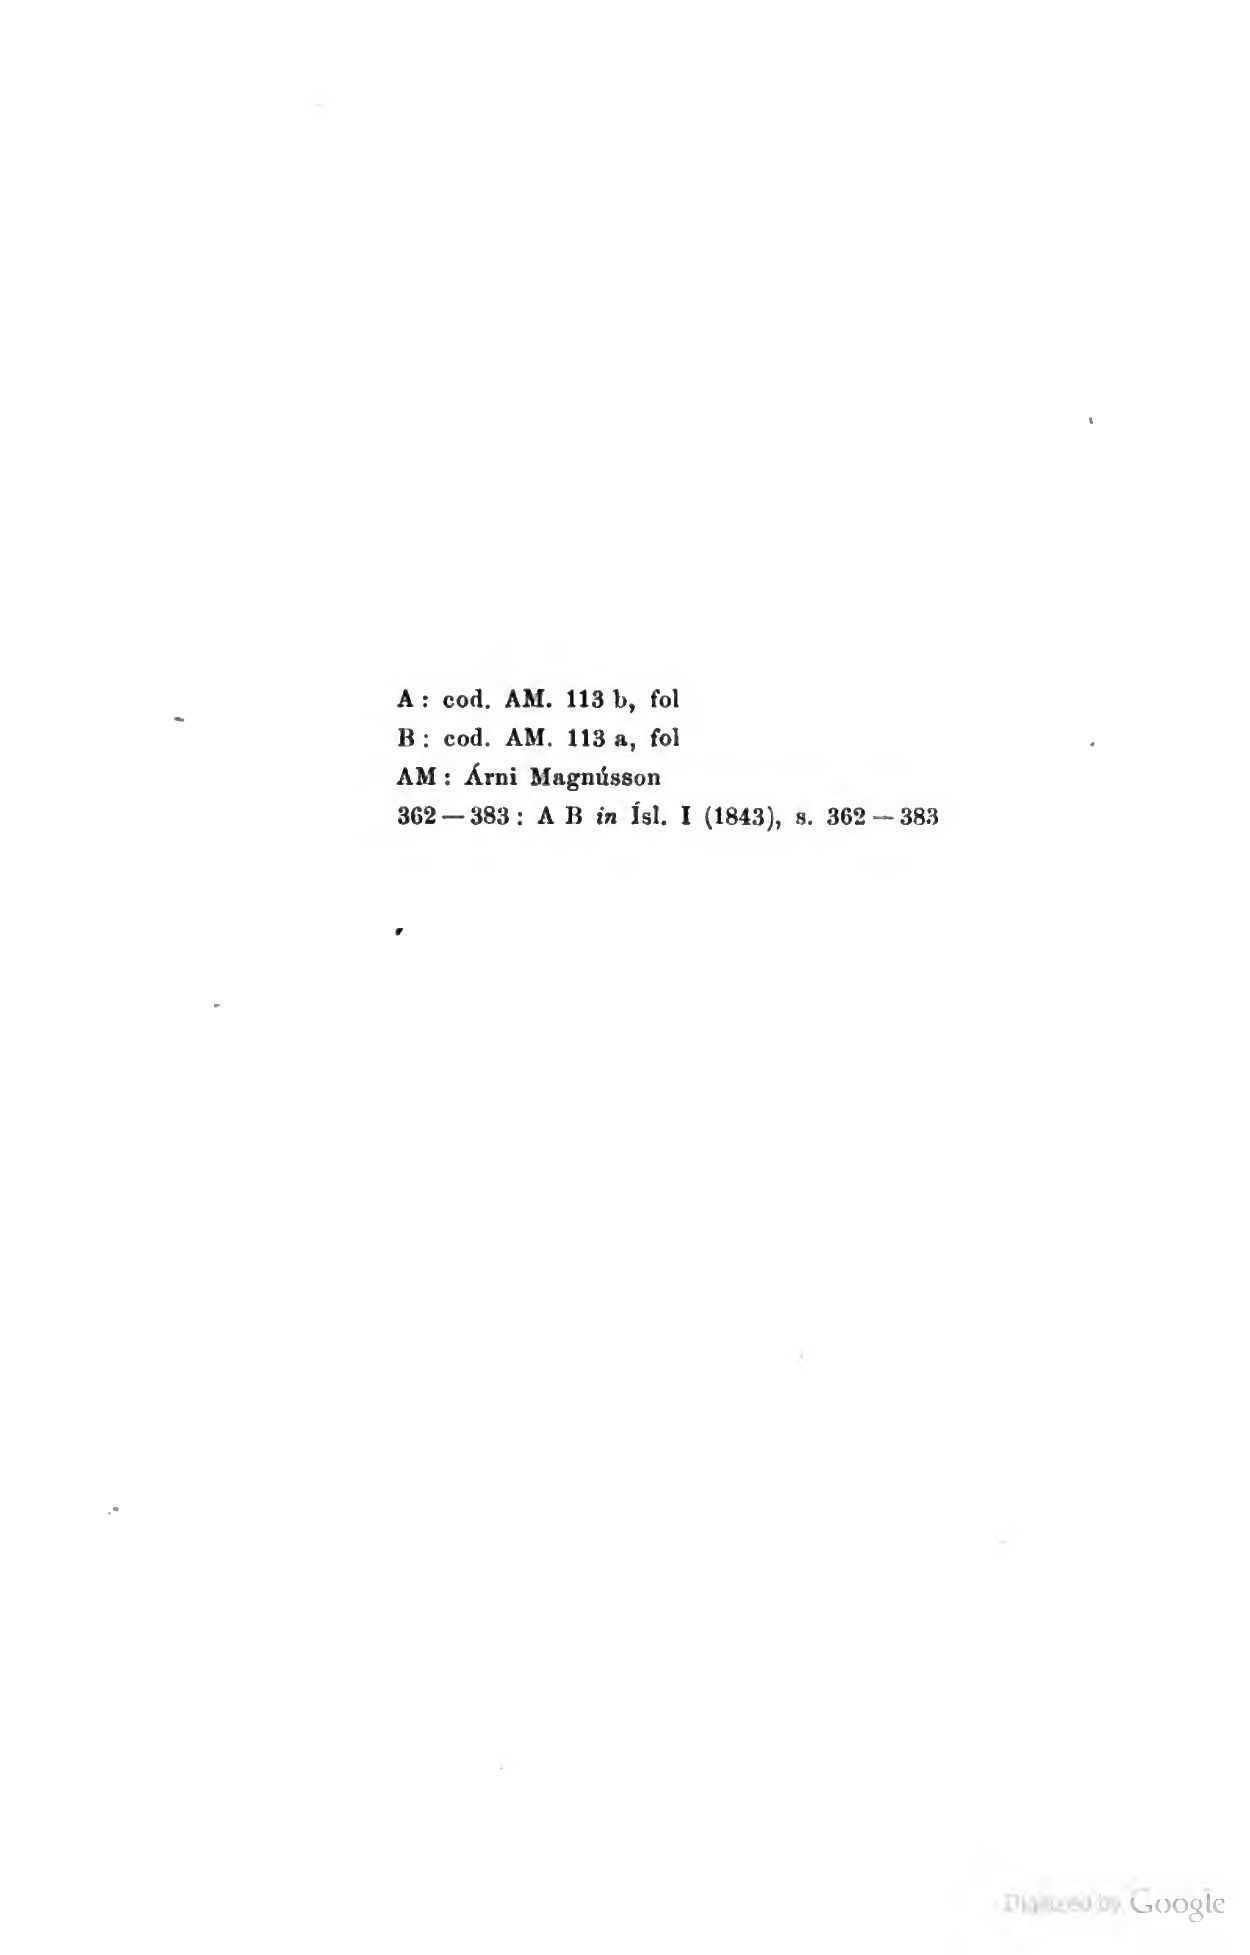 A : cod. AM. 113 b, fol
B : cod. AM. 113 a, fol
AM : Árni Magnússon
362 — 383 : A B in Ísl. I (1843), s. 362 — 383
Digitized by Google